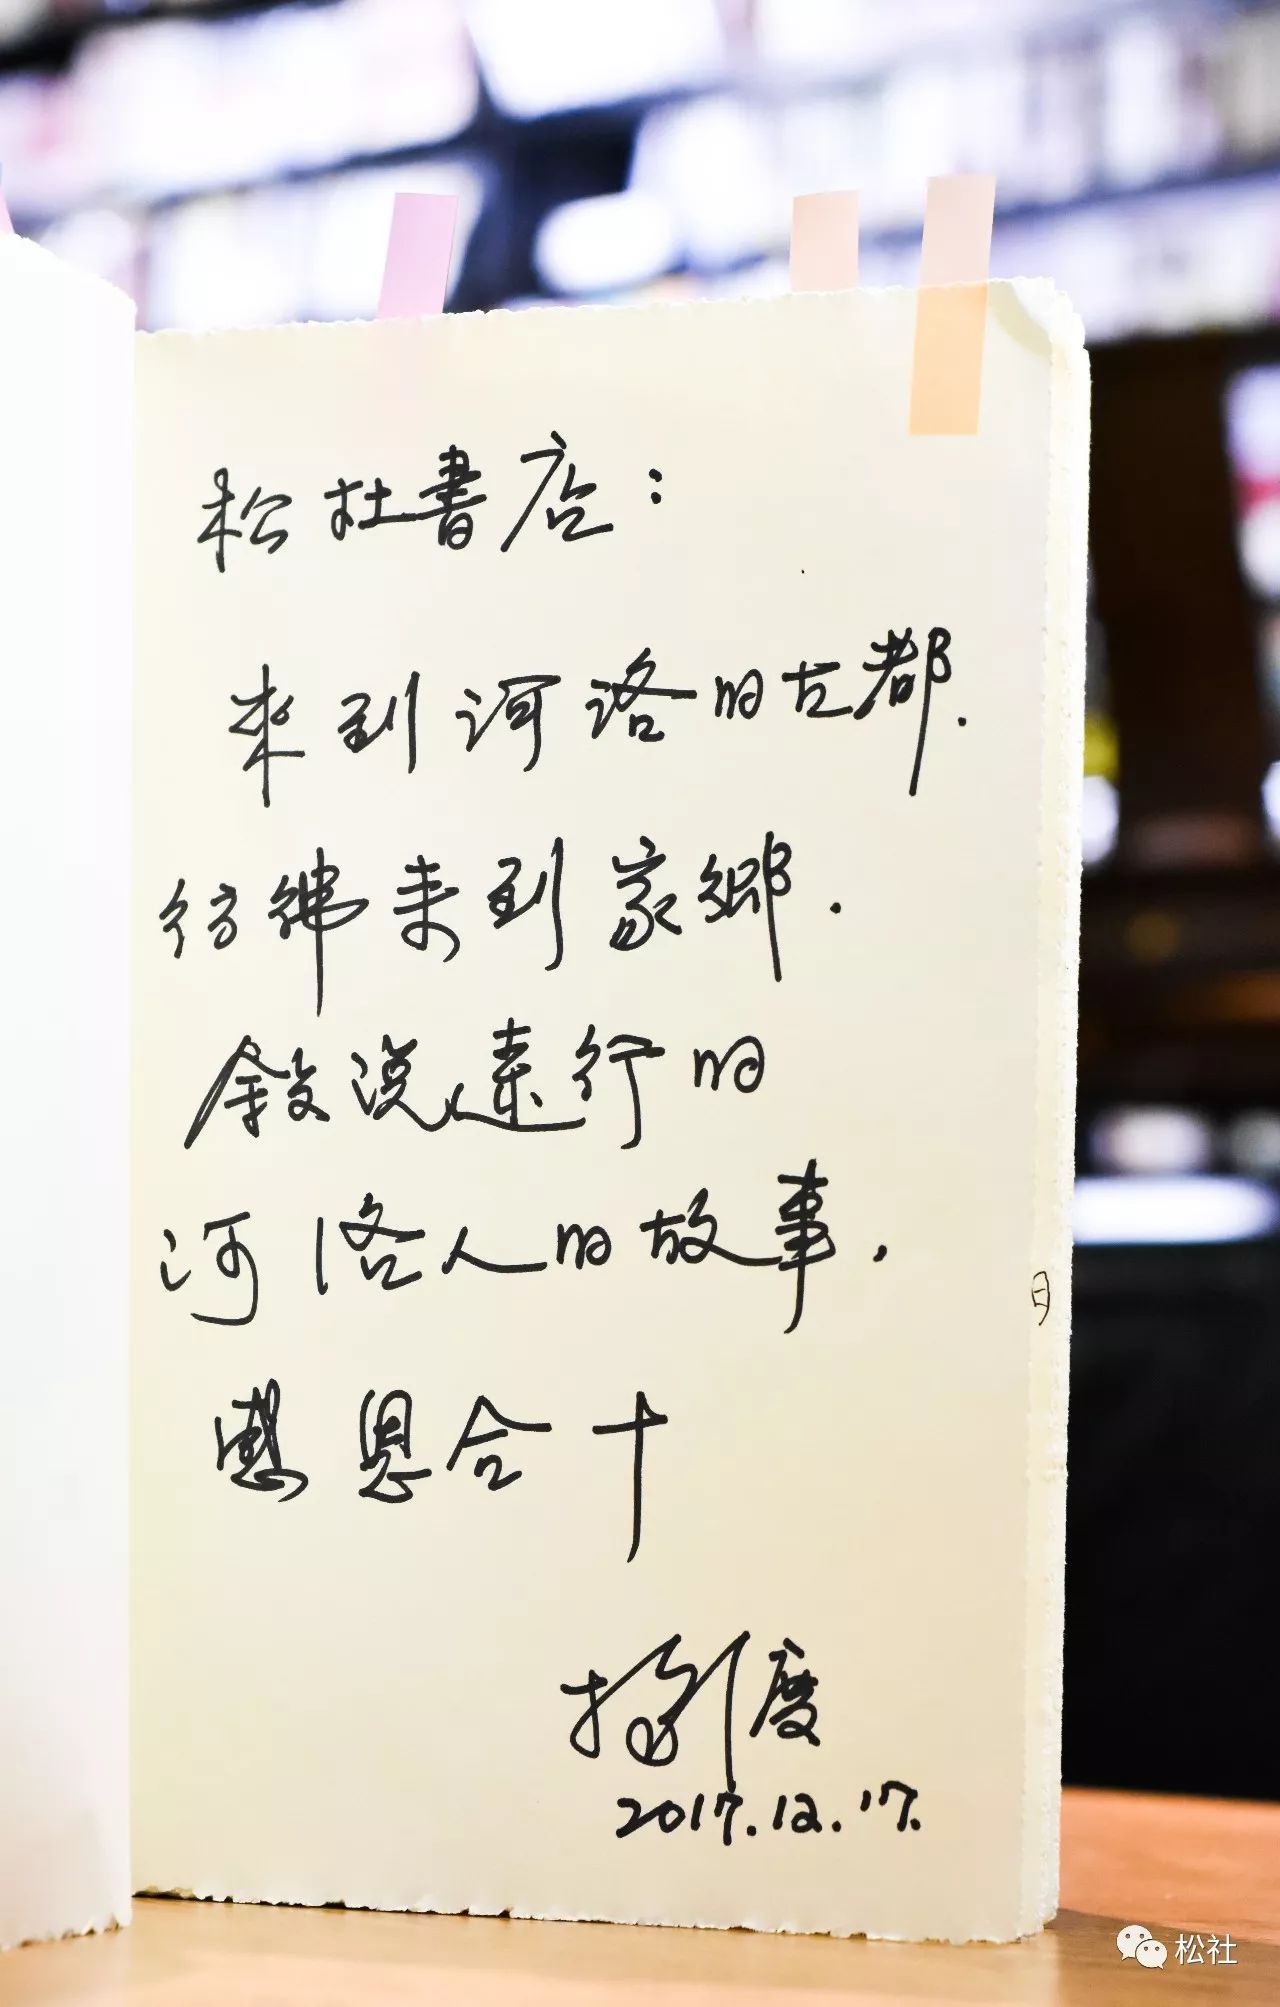 松社書店：
來到河洛的古都.
彷彿来到家鄉.
敘說遠行的
河洛人的故事.
感恩合十
楊渡
2017.12.17.
日
松社